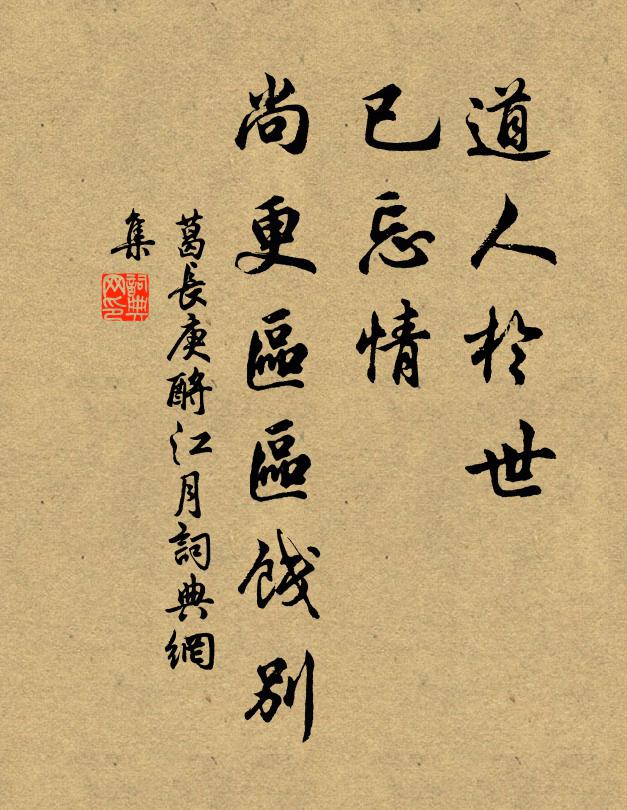 道人於世
已忘情
尚更區區餞別
葛長庚酹江月詞典網
集
詞典
网印